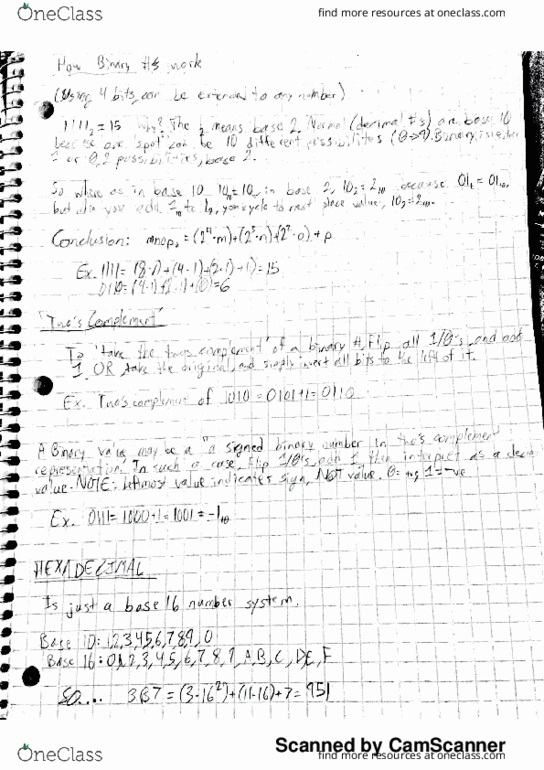 OneClass
find more resources at oneclass.com
How Binary #s work
(Using 4 bits, can be extended to any number)
1111₂ = 15 Why? The ₂ means base 2. Normal (decimal #s) are base 10
because one "spot" can be 10 different possibilities (0→9). Binary is either
1 or 0, 2 possibilities, base 2.
So where as in base 10 in base 2, 10₂ = 2₁₀ because 01₂ = 01₁₀,
but when you add 1 to 1₂, you cycle to next place value, 10₂ = 2₁₀.
Conclusion: mnop₂ = (2⁴·m)+(2³·n)+(2²·o)+p
Ex. 1111 = (8·1)+(4·1)+(2·1)+1) = 15
0110 = (4·1)+(2·1)+(0) = 6
"Two's Complement"
To "take the twos complement" of a binary #, Flip all 1/0's, and add
1. OR take the original, and simply invert all bits to the left of it.
Ex. Two's complement of 1010 = 0101+1 = 0110
A Binary value may be a "a signed binary number in two's complement
representation. In such a case, flip 1/0's, add 1 then interpret as a
value. NOTE: leftmost value indicates sign, NOT value. 0= 1=-ve
Ex. 0111 = 1000+1 = 1001 = -1₁₀
HEXADECIMAL
Is just a base 16 number system.
Base 10: 1,2,3,4,5,6,7,8,9,0
Base 16: 0,1,2,3,4,5,6,7,8,9,A,B,C,D,E,F
So... 3B7 = (3·16²)+(11·16)+7 = 951
Scanned by CamScanner
OneClass
find more resources at oneclass.com